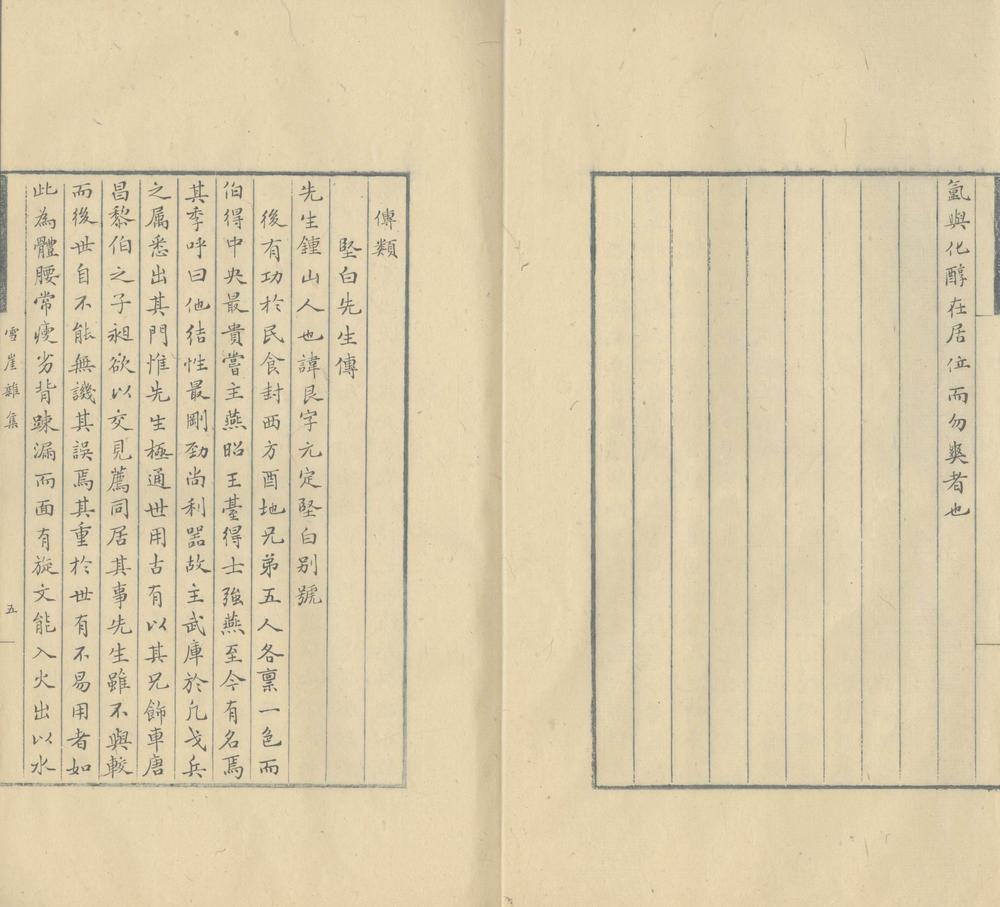 氫與化醇在居位而勿爽者也
傳類
堅白先生傳
先生鍾山人也諱艮字元定堅白别號
後有功於民食封西方酉地兄弟五人各禀一色而
伯得中央最貴嘗主燕昭王臺得士強燕至今有名焉
其季呼曰他结性最剛勁尚利噐故主武庫於凢戈兵
之属悉出其門惟先生極通世用古有以其兄飾車唐
昌黎伯之子昶欲以交見薦同居其事先生雖不與較
而後世自不能無譏其誤焉其重於世有不易用者如
此為體腰常瘦劣背踈漏而面有旋文能入火出以水
雪崖雜集
五